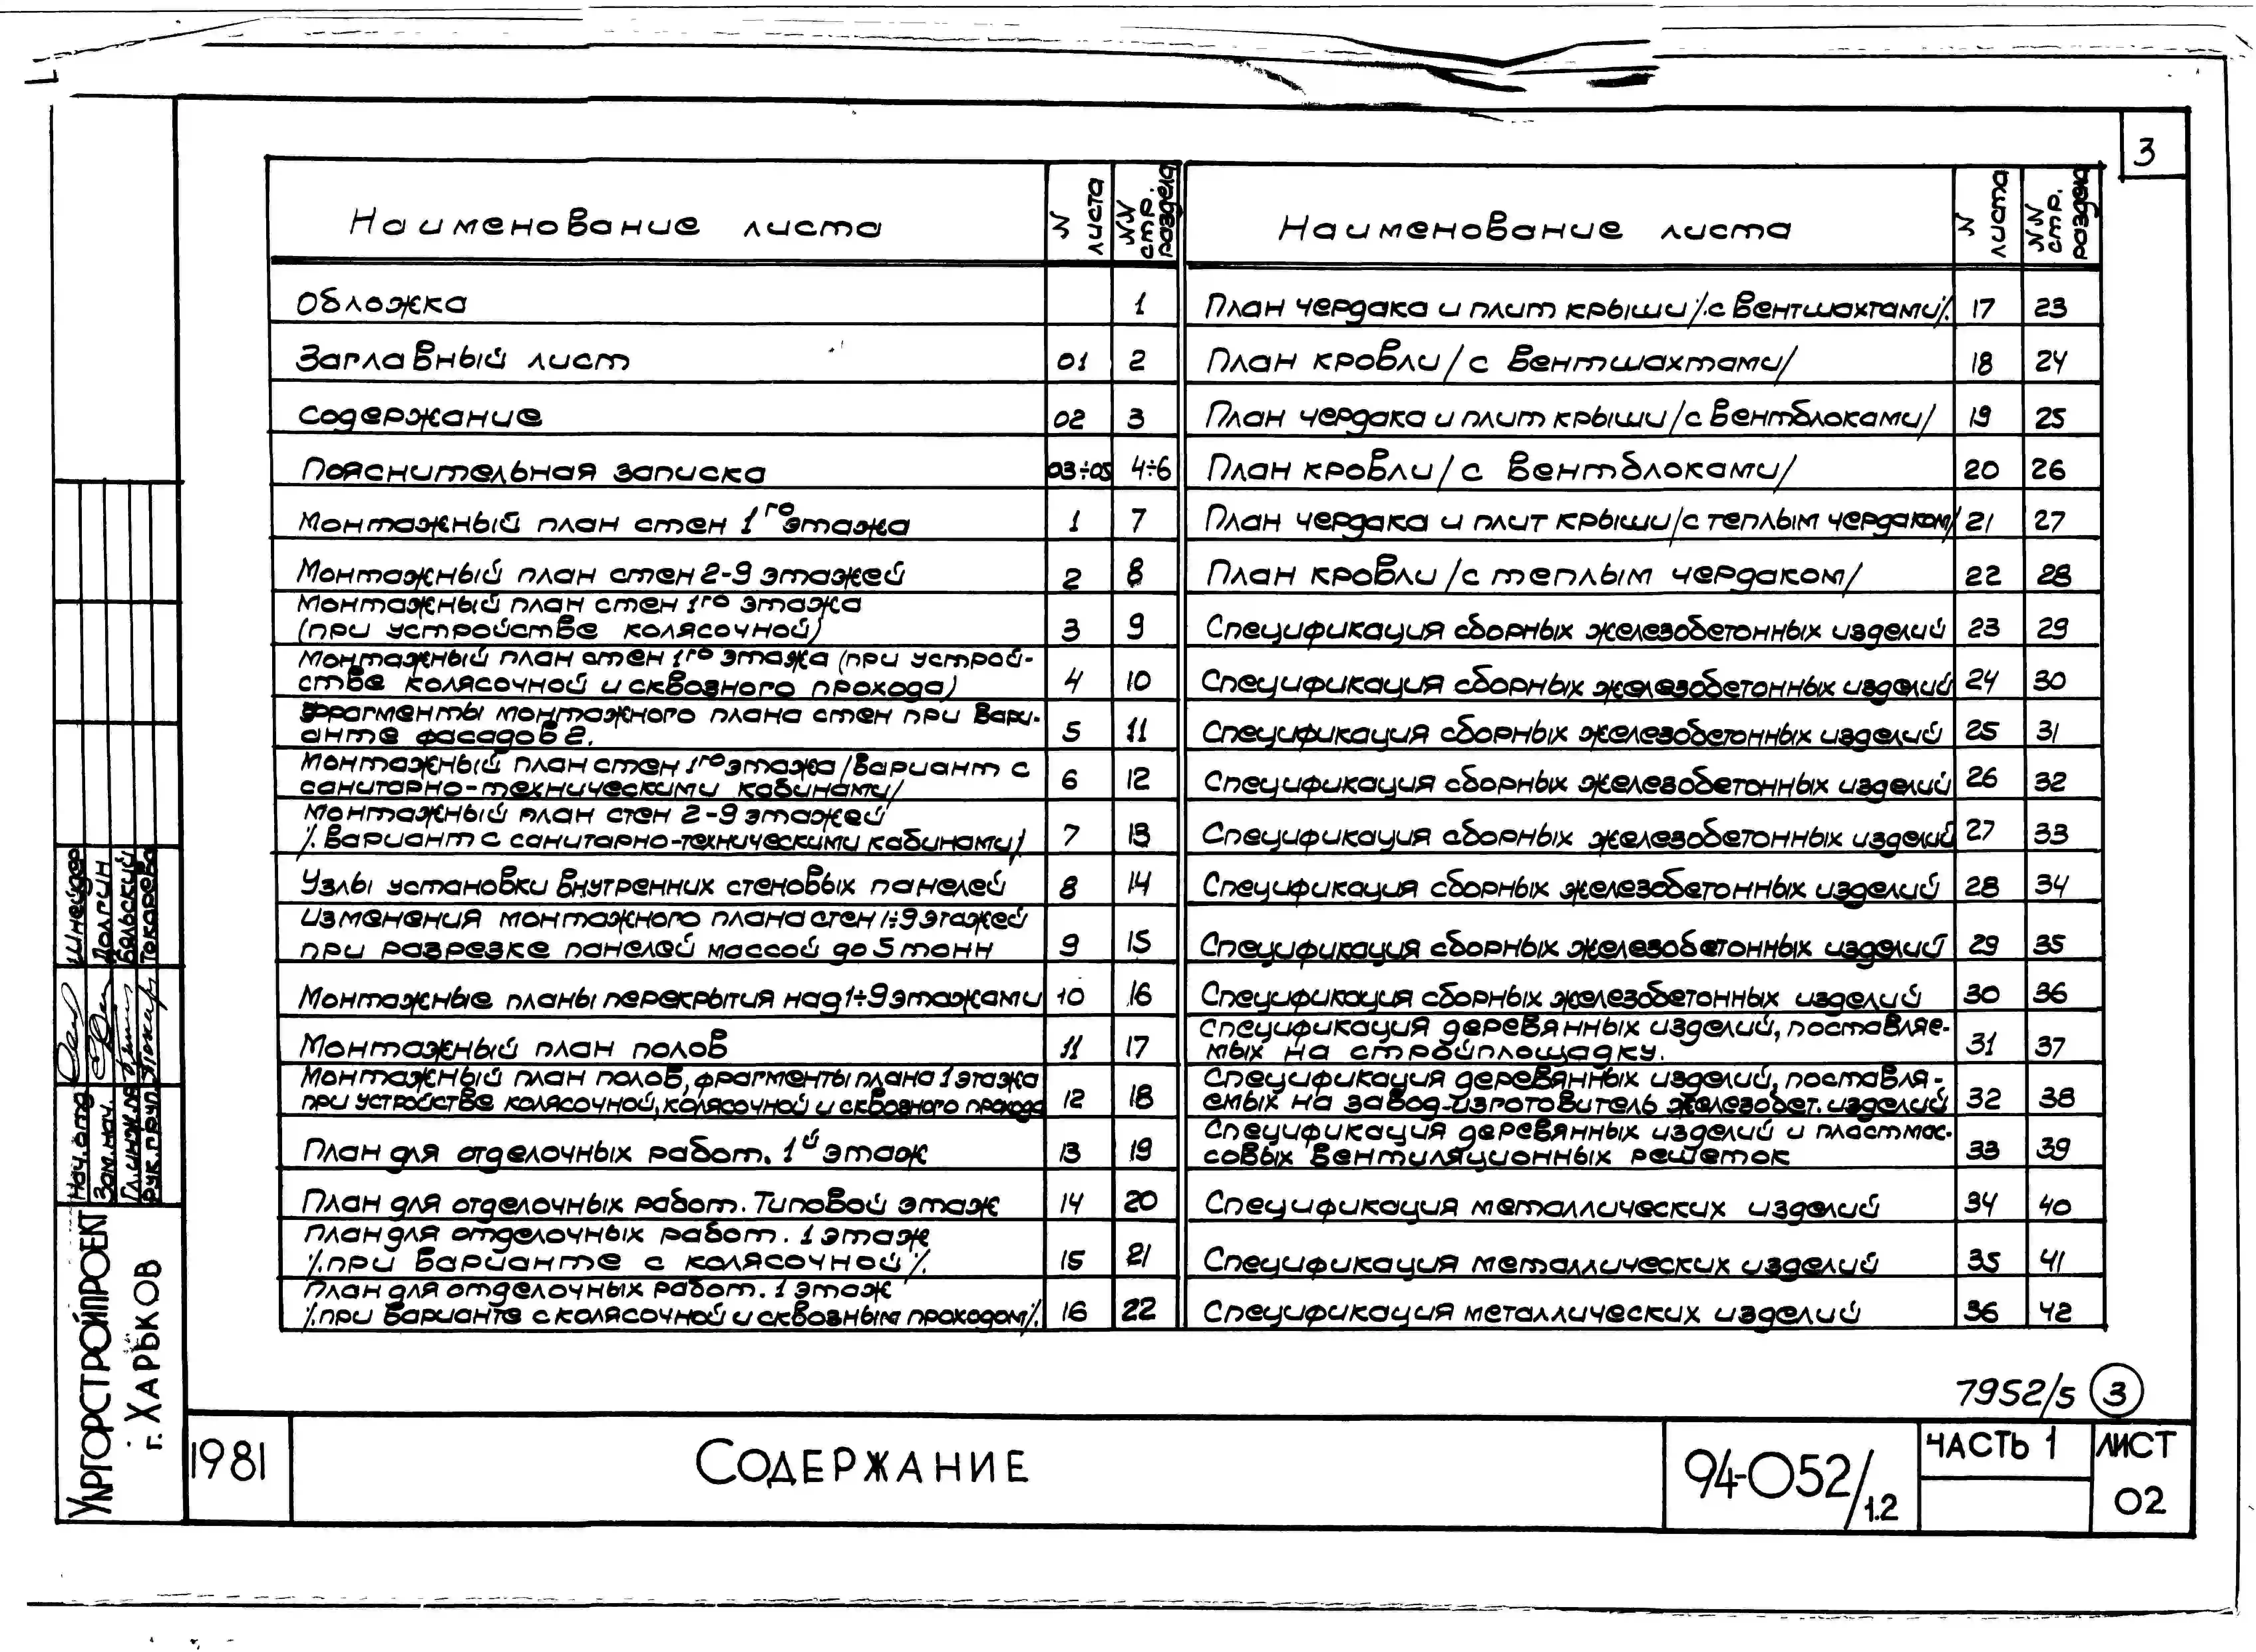 3
Наименование листа
N листа
NN стр. раздела
Обложка 1
Заглавный лист 01 2
Содержание 02 3
Пояснительная записка 03÷05 4÷6
Монтажный план стен 1го этажа 1 7
Монтажный план стен 2-9 этажей 2 8
Монтажный план стен 1го этажа
(при устройстве колясочной) 3 9
Монтажный план стен 1го этажа (при устрой-
стве колясочной и сквозного прохода) 4 10
Фрагменты монтажного плана стен при вари-
анте фасадов 2. 5 11
Монтажный план стен 1го этажа /вариант с
санитарно-техническими кабинами/ 6 12
Монтажный план стен 2-9 этажей
/.вариант с санитарно-техническими кабинами/ 7 13
Узлы установки внутренних стеновых панелей 8 14
Изменения монтажного плана стен 1÷9 этажей
при разрезке панелей массой до 5 тонн 9 15
Монтажные планы перекрытия над 1÷9 этажами 10 16
Монтажный план полов 11 17
Монтажный план полов, фрагменты плана 1 этажа
при устройстве колясочной, колясочной и сквозного прохода 12 18
План для отделочных работ. 1й этаж 13 19
План для отделочных работ. Типовой этаж 14 20
План для отделочных работ. 1 этаж
/.при варианте с колясочной/. 15 21
План для отделочных работ. 1 этаж
/.при варианте с колясочной и сквозным проходом/. 16 22
Наименование листа
N листа
NN стр. раздела
План чердака и плит крыши/.с вентшахтами/. 17 23
План кровли/с вентшахтами/ 18 24
План чердака и плит крыши/с вентблоками/ 19 25
План кровли/с вентблоками/ 20 26
План чердака и плит крыши/с теплым чердаком/ 21 27
План кровли/с теплым чердаком/ 22 28
Спецификация сборных железобетонных изделий 23 29
Спецификация сборных железобетонных изделий 24 30
Спецификация сборных железобетонных изделий 25 31
Спецификация сборных железобетонных изделий 26 32
Спецификация сборных железобетонных изделий 27 33
Спецификация сборных железобетонных изделий 28 34
Спецификация сборных железобетонных изделий 29 35
Спецификация сборных железобетонных изделий 30 36
Спецификация деревянных изделий, поставляе-
мых на стройплощадку. 31 37
Спецификация деревянных изделий, поставля-
емых на завод-изготовитель железобет. изделий 32 38
Спецификация деревянных изделий и пластмас-
совых вентиляционных решеток 33 39
Спецификация металлических изделий 34 40
Спецификация металлических изделий 35 41
Спецификация металлических изделий 36 42
7952/5 3
Нач. отд. Шнейдер
Зам. нач. Долгин
Гл. инж. пр. Бяльский
Рук. груп. Токарева
Укргорстройпроект
г. Харьков
1981
Содержание
94-052/1.2
Часть 1
Лист
02